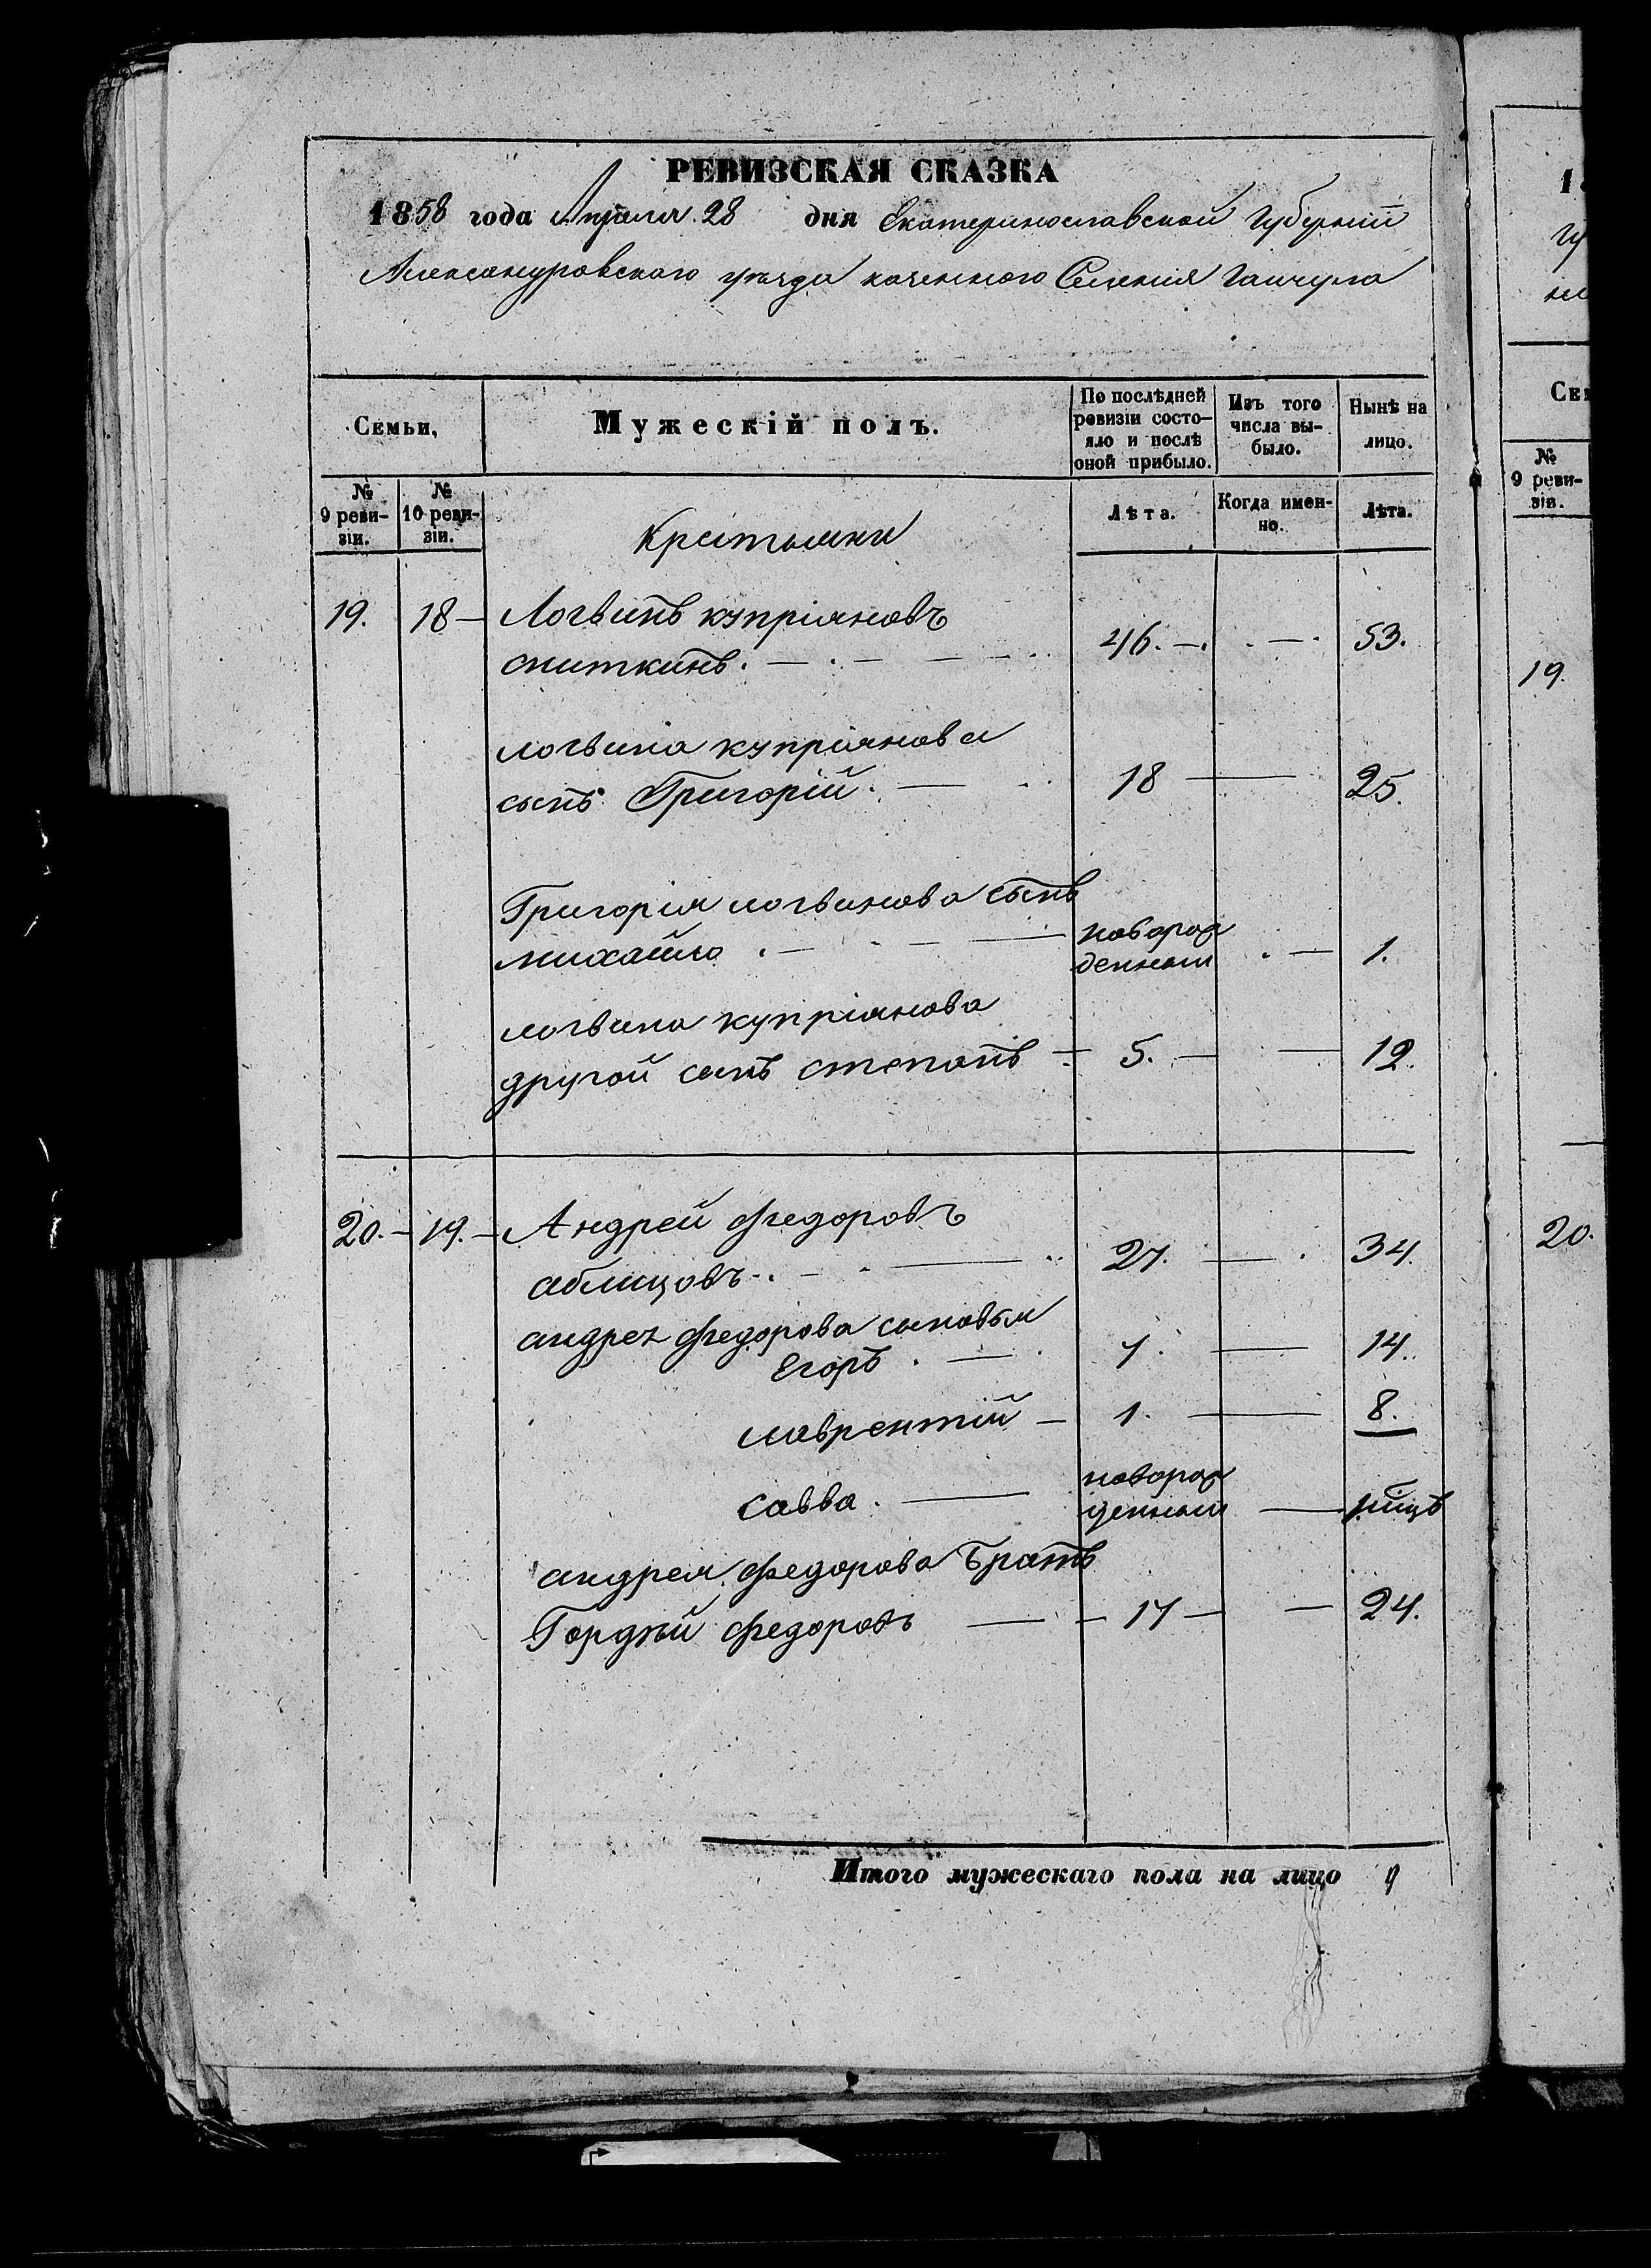 РЕВИЗСКАЯ СКАЗКА
1858 года Апреля 28 дня Екатеринославской Губернии
Александровскаго уезда казенного Селения Гайчула
Семьи,
Мужескій полъ.
По послѣдней ревизіи состо-
яло и послѣ
оной прибыло.
Изъ того
числа вы-
было.
Нынѣ на
лицо.
№
9 реви-
зіи.
№
10 реви-
зіи.
Крестьяни
Лѣта.
Когда имен-
но.
Лѣта.
19. 18 — Логвинъ купріяновъ
сниткинъ. — 46. — 53.
логвина купріянова
сынъ Григорій. — 18 — 25.
Григорія логвинова сынъ
михайло . — новорож
денный — 1.
логвина купріянова
другой сынъ степанъ — 5. — 12.
20. — 19. — Андрей федоровъ
аблицовъ. — 27. — 34.
андрея федорова сыновья
Егоръ . — 7. — 14.
лаврентій — 1. — 8.
савва . — новорож
денный —
андрея федорова братъ
Гордѣй федоровъ — 17 — 24.
Итого мужескаго пола на лицо 9
1
гу
Се
№
9 реви-
зіи.
19.
20.